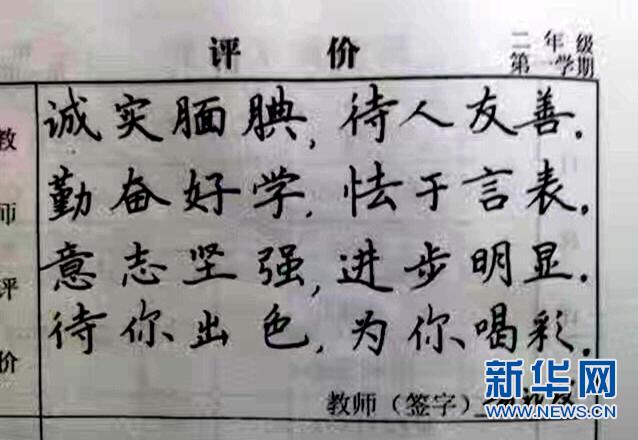 评 价
二年级
第一学期
教师评价
诚实腼腆,待人友善.
勤奋好学,怯于言表.
意志坚强,进步明显.
待你出色,为你喝彩.
教师(签字)
新华网
WWW.NEWS.CN